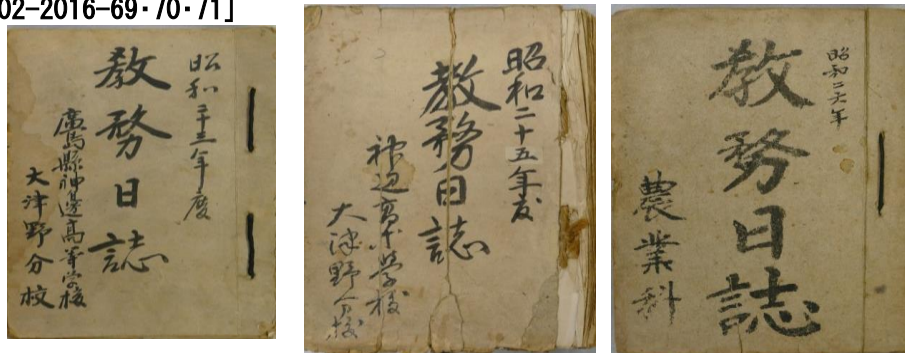 02-2016-69・70・71]
昭和二十三年度
教務日誌
廣島縣神邊高等学校
大津野分校
昭和二十五年度
教務日誌
神辺高等学校
大津野分校
昭和二六年
教務日誌
農業科